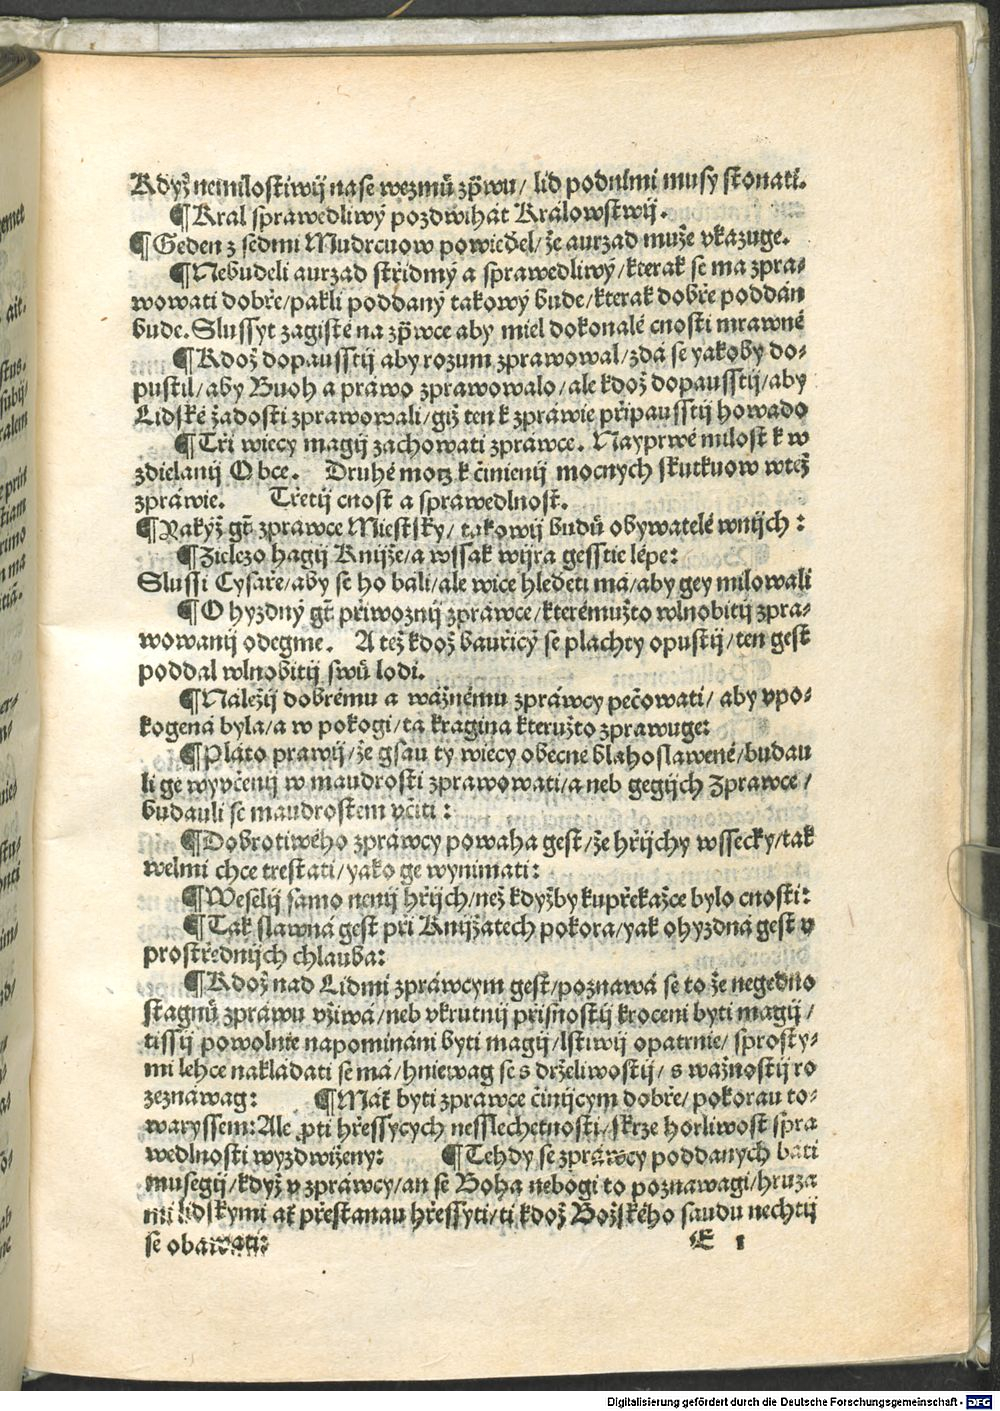 Když nemilostiwij na se wezmů zp̄wu/ lid pod nimi musy stonati.
¶Kral sprawedliwý pozdwihát Králowstwij.
¶Geden z sedmi Mudrcuow powieďel/ že aurzad muže vkazuge.
¶Nebudeli aurzad střidmý a sprawedliwý/ kterak se ma zpra-
wowati dobře/ pakli poddaný takowý bude/ kterak dobře poddán
bude. Slussyt zagisté na zp̄wce aby miel dokonalé cnosti mrawné
¶Kdož dopausstij aby rozum zprawowal/ zdá se yakoby do-
pustil/ aby Buoh a práwo zprawowalo/ ale kdož dopausstij/ aby
Lidské žadosti zprawowali/ giž ten k zpráwie připausstij howado
¶Tři wiecy magij zachowati zpráwce. Nayprwé milost k w
zdielanij Obce. Druhé motz k činienij mocnych skutkuow w též
zpráwie. Třetij cnost a sprawedlnost.
¶Yakýž gt̄ zprawce Miestský/ takowij budů obywatelé wnijch:
¶Zielezo hagij Knijže/ a wssak wijra gesstie lépe:
Slussi Cysaře/ aby se ho bali/ ale wice hledeti má/ aby gey milowali
¶Ohyzdný gt̄ přiwoznij zpráwce/ kterémužto wlnobitij zpra-
wowanij odegme. A též kdož bauřicý se plachty opustij/ ten gest
poddal wlnobitij swů lodi.
¶Náležij dobrému a wážnému zpráwcy pečowati/ aby vpo-
kogená byla/ a w pokogi/ tá kragina kteružto zprawuge:
¶Pláto prawij/ že gsau ty wiecy obecne blahoslawené/ budau
li ge wyvčenij w maudrosti zprawowati/ a neb gegijch Zprawce/
budauli se maudrostem včiti:
¶Dobrotiwého zpráwcy powaha gest/ že hřijchy wssecky/ tak
welmi chce trestati/ yako ge wynimati:
¶Weselij samo nenij hřijch/ než kdyžby ku překažce bylo cnosti:
¶Tak slawná gest při Knijžatech pokora/ yak ohyzdná gest v
prostřednijch chlauba:
¶Kdož nad Lidmi zpráwcym gest/ poznawá se to že negedno
stagnů zpráwu vžiwá/ neb vkrutnij přisnostij kroceni byti magij/
tissij powolnie napominani byti magij/ lstiwij opatrnie/ sprosty-
mi lehce nakládati se má/ hniewag se s drželiwostij/ s wážnostij ro
zeznáwag: ¶Mát byti zprawce činijcym dobře/ pokorau to-
waryssem: Ale ꝓti hřessycych nesslechetnosti/ skrze horliwost spra
wedlnosti wyzdwiženy: ¶Tehdy se zpráwcy poddanych báti
musegij/ když v zpráwcy/ an se Boha nebogi to poznawagi/ hruza
mi lidskymi at přestanau hřessyti/ ti kdož Božského saudu nechtij
se obawati:
E 1
Digitalisierung gefördert durch die Deutsche Forschungsgemeinschaft - DFG